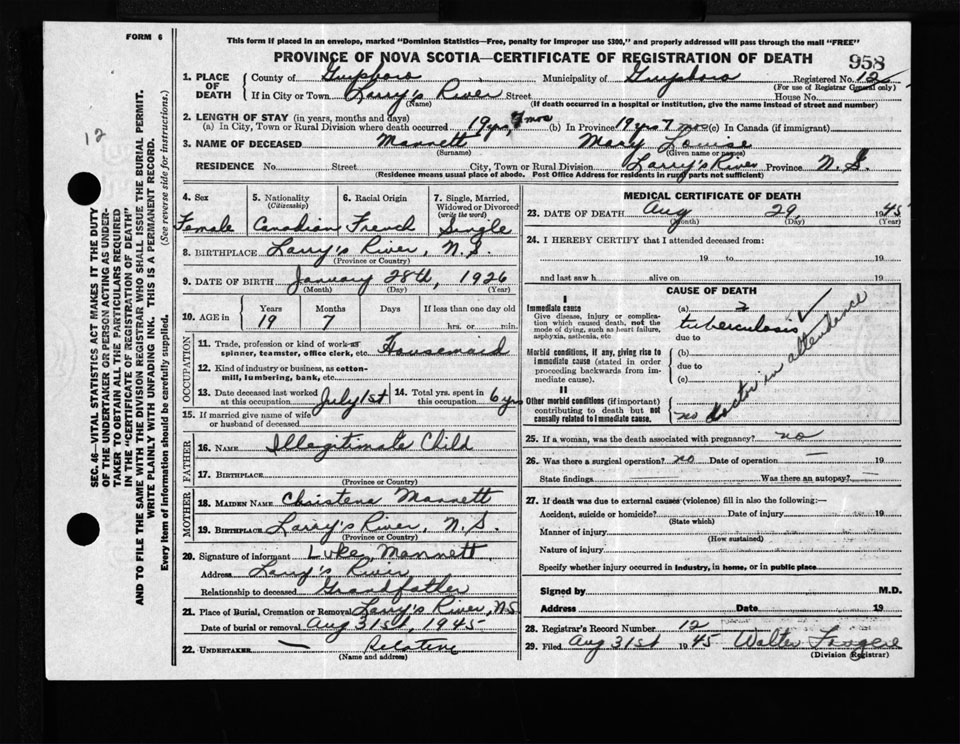 FORM 6
This form if placed in an envelope, marked "Dominion Statistics—Free, penalty for improper use $300," and properly addressed will pass through the mail "FREE"
PROVINCE OF NOVA SCOTIA—CERTIFICATE OF REGISTRATION OF DEATH
958
1. PLACE OF DEATH
County of Guysboro Municipality of Guysboro Registered No. 12
(For use of Registrar General only)
If in City or Town Larry's River Street House No.
(Name) (If death occurred in a hospital or institution, give the name instead of street and number)
2. LENGTH OF STAY (in years, months and days)
(a) In City, Town or Rural Division where death occurred 19 yrs, 7 mos (b) In Province 19 yrs 7 mos (c) In Canada (if immigrant)
3. NAME OF DECEASED Mannett Mary Louise
(Surname) (Given name or names)
RESIDENCE No. Street City, Town or Rural Division Larry's River Province N.S.
(Residence means usual place of abode. Post Office Address for residents in rural parts not sufficient)
4. Sex
Female
5. Nationality (Citizenship)
Canadian
6. Racial Origin
French
7. Single, Married, Widowed or Divorced (write the word)
Single
8. BIRTHPLACE Larry's River, N.S
(Province or Country)
9. DATE OF BIRTH January 28th, 1926
(Month) (Day) (Year)
10. AGE in Years Months Days If less than one day
19 7 hrs. or min.
OCCUPATION
11. Trade, profession or kind of work as spinner, teamster, office clerk, etc. Housemaid
12. Kind of industry or business, as cotton-mill, lumbering, bank, etc.
13. Date deceased last worked at this occupation July 1st
14. Total yrs. spent in this occupation 6 yrs
15. If married give name of wife or husband of deceased
FATHER
16. NAME Illegitimate Child
17. BIRTHPLACE
(Province or Country)
MOTHER
18. MAIDEN NAME Christena Mannett
19. BIRTHPLACE Larry's River, N.S.
(Province or Country)
20. Signature of informant Luke Mannett
Address Larry's River
Relationship to deceased Grandfather
21. Place of Burial, Cremation or Removal Larry's River, NS
Date of burial or removal Aug 31st, 1945
22. UNDERTAKER — Relative
(Name and address)
MEDICAL CERTIFICATE OF DEATH
23. DATE OF DEATH Aug 29, 1945
(Month) (Day) (Year)
24. I HEREBY CERTIFY that I attended deceased from:
19 to 19
and last saw h alive on 19
CAUSE OF DEATH
I
Immediate cause
Give disease, injury or complication which caused death, not the mode of dying, such as heart failure, asphyxia, asthenia, etc
(a) ?
tuberculosis
due to
Morbid conditions, if any, giving rise to immediate cause (stated in order proceeding backwards from immediate cause).
(b)
due to
(c)
II
Other morbid conditions (if important) contributing to death but not causally related to immediate cause.
no doctor in attendance
25. If a woman, was the death associated with pregnancy? no
26. Was there a surgical operation? no Date of operation — 19
State findings Was there an autopsy?
27. If death was due to external causes (violence) fill in also the following:—
Accident, suicide or homicide? Date of injury 19
(State which)
Manner of injury
(How sustained)
Nature of injury
Specify whether injury occurred in industry, in home, or in public place
Signed by M.D.
Address Date 19
28. Registrar's Record Number 12
29. Filed Aug 31st 1945 Walter
(Division Registrar)
12
SEC. 46—VITAL STATISTICS ACT MAKES IT THE DUTY
OF THE UNDERTAKER OR PERSON ACTING AS UNDER-
TAKER TO OBTAIN ALL THE PARTICULARS REQUIRED
IN THE "CERTIFICATE OF REGISTRATION OF DEATH"
AND TO FILE THE SAME WITH THE DIVISION REGISTRAR WHO SHALL ISSUE THE BURIAL PERMIT.
WRITE PLAINLY WITH UNFADING INK. THIS IS A PERMANENT RECORD.
Every item of information should be carefully supplied. (See reverse side for instructions.)